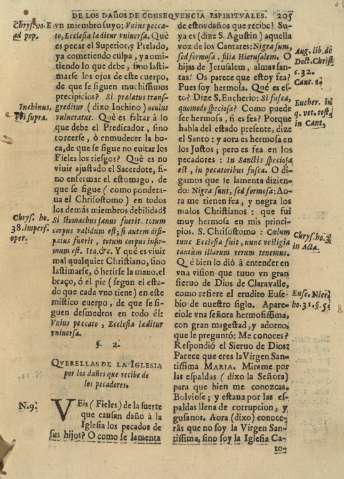 DE LOS DAÑOS DE CONSEQVENCIA ESPIRITVALES. 205
Chrysos. E
ad pop.
Inchinus,
vbi supra.
Chrys. ho.
38. imperf.
oper.
N. 9.
vn miembro suyo; Vnius pecca-
to, Ecclesia læditur vniuersa. Què
es pecar el Superior, y Prelado,
ya cometiendo culpa, y a omi-
tiendo lo que debe, sino lasti-
marse los ojos de este cuerpo,
de que se siguen muchissimos
precipicios? Si prælatus trans-
greditur (dixo Inchino) oculus
vulneratur. Què es faltar à lo
que debe el Predicador, sino
torcerse, ò enmudecer la bo-
ca, de que se sigue no euitar los
Fieles los riesgos? Què es no
viuir ajustado el Sacerdote, si-
no enfermar el estomago, de
que se sigue (como pondera-
na el Chrisostomo) en todos
los demàs miembros debilidad?
Si stomachus sanus fuerit, totum
corpus validum est; si autem dissi-
patus fuerit, totum corpus infir-
mum est, &c. Y què es viuir
mal qualquier Christiano, sino
lastimarse, ò herirse la mano, el
braço, ò el pie (segun el esta-
do que cada vno tiene) en este
mistico cuerpo, de que se si-
guen desmedros en todo èl:
Vnius peccato, Ecclesia læditur
vniuersa.
§. 2.
QVERELLAS DE LA IGLESIA
por los daños que recibe de
los pecadores.
VEis (Fieles) de la suerte
que causan daño à la
Iglesia los pecados de
sus hijos? O como se lamenta
de estos daños que recibe! Su-
ya es (dize S. Agustin) aquella
voz de los Cantares: Nigra sum,
sed formosa, filiæ Hierusalem. O
hijas de Jerusalen, almas san-
tas! Os parece que estoy fea?
Pues soy hermosa. Què es es-
to? Dize S. Eucherio: Si fusca,
quomodo speciosa? Como puede
ser hermosa, si es fea? Porque
habla del estado presente, dize
el Santo; y aora es hermosa en
los Justos; pero es fea en los
pecadores: In Sanctis speciosa
est, in peccatoribus fusca. O di-
gamos que se lamenta dizien-
do: Nigra sum, sed formosa: Ao-
ra me tienen fea, y negra los
malos Christianos: que fui
muy hermosa en mis princi-
pios. S. Chrisostomo: Cœlum
tunc Ecclesia fuit, nunc vestigia
tantum illarum rerum tenemus.
O q bien lo diò à entender en
vna vision que tuuo vn gran
sieruo de Dios de Claravale,
como refiere el erudito Euse-
bio de nuestro siglo. Apare-
ciole vna señora hermosissima,
con gran magestad, y adorno,
que le preguntò: Me conoces?
Respondiò el Sieruo de Dios:
Parece que eres la Virgen San-
tissima MARIA. Mirame por
las espaldas (dixo la Señora)
para que bien me conozcas.
Bolviose; y estaua por las es-
paldas llena de corrupcion, y
gusanos. Aora (dixo) conoce-
ràs que no soy la Virgen San-
tissima, sino soy la Iglesia Ca-
Aug. lib. de
Doct. Christ.
c. 32.
Cant. 1.
Eucher. in
q. vet. test.
in Cant.
Chrys. ho.
in Acta.
Euse. Nier.